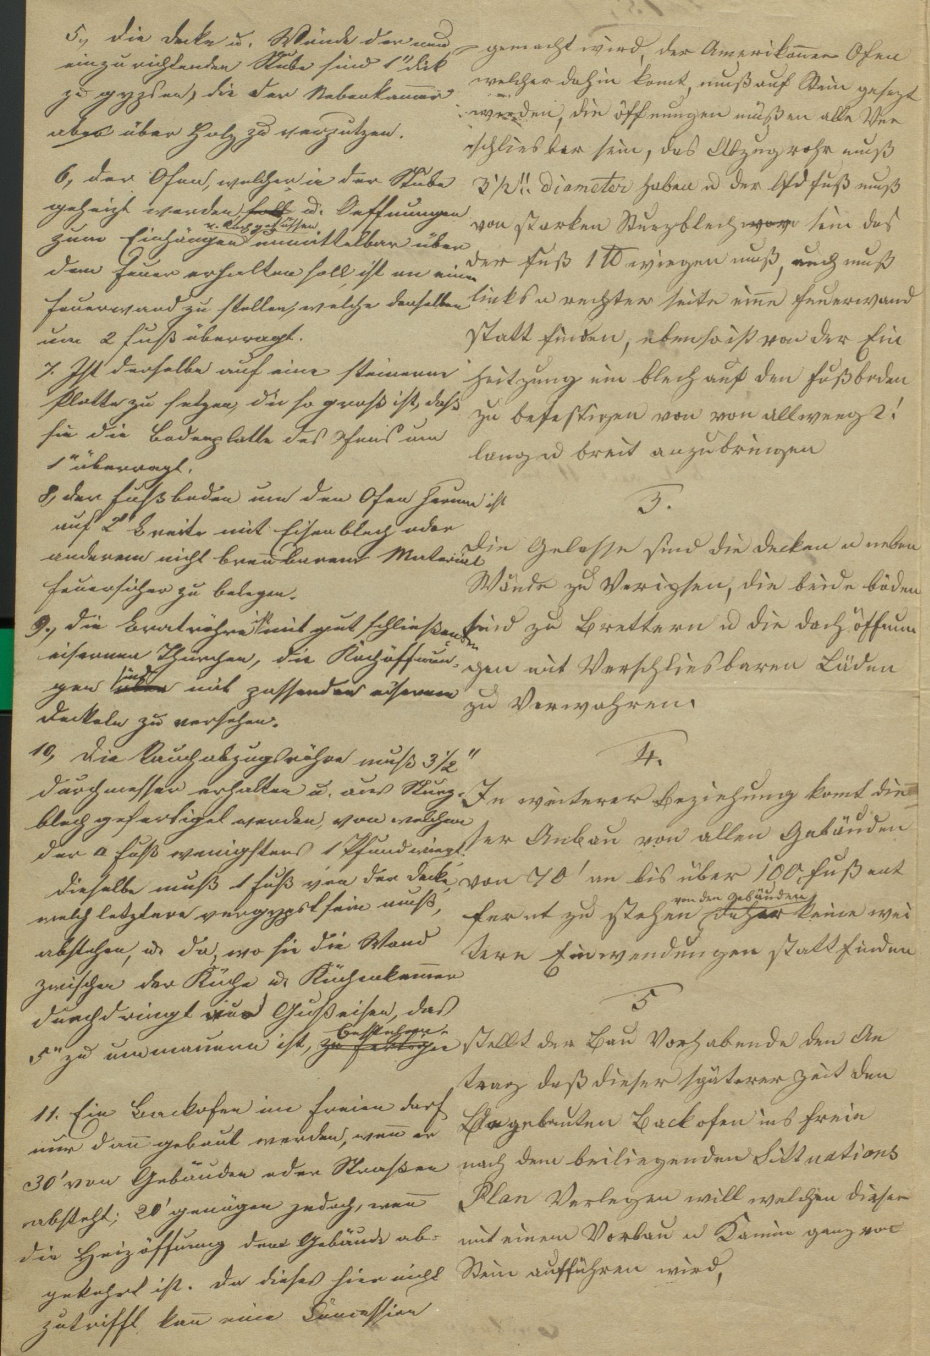 5., die Decke u. Wände der neu
einzurichtenden Stube sind 1" dick
zu gypsen, die der Nebenkammer
aber über Holz zu verputzen.
6, der Ofen, welcher in der Stube
geheizt werden soll u. Oeffnungen
u. Kochgefässen
zum Einhängen unmittelbar über
dem Feuer erhalten soll, ist an eine
Feuerwand zu stellen, welche denselben
um 2 Fuß überragt.
7. Ist derselbe auf eine steinerne
Platte zu setzen, die so groß ist, daß
sie die Bodenplatte des Ofens um
1" überragt.
8, der Fußboden um den Ofen herum ist
auf 2' Breite mit Eisenblech oder
anderem nicht brennbarem Material
feuersicher zu belegen.
9., die Bratröhre ist mit gut schließenden
eisernen Thürchen, die Kochöffnun-
sind
gen aber mit passenden eisernen
Deckeln zu versehen.
10, die Rauchabzugsröhre muß 3 1/2"
Durchmesser erhalten u. aus Sturz-
blech gefertigt werden, von welchem
der Fuß wenigstens 1 Pfund wiegt.
dieselbe muß 1 Fuß von der Decke,
welch letztere vergypst sein muß,
abstehen, u. da, wo sie die Wand
zwischen der Küche u. Küchenkammer
durchdringt aus Gußeisen, das
bestehen.
5" zu ummauern ist, zu fertigen
11. Ein Backofen im Freien darf
nur dann gebaut werden, wenn er
30' von Gebäuden oder Straßen
absteht; 20' genügen jedoch, wenn
die Heizöffnung dem Gebäude ab-
gekehrt ist. Da dieses hier nicht
zutrifft kann eine Concession
gemacht wird, der Amerikanner Ofen
welcher dahin komt, muß auf Stein gesezt
werden, die öffnungen müßen alle Ver
schliesbar sein, das Abzugrohr muß
3 1/2" diameter haben u der Fuß muß
von starken Sturzblech von sein das
der Fuß 1 ℔ wiegen muß, auch muß
links u rechter seite eine Feuerwand
statt finden, ebenso ist von der Ein
heitzung ein blech auf den Fußboden
zu befestigen von von allweeg 2'
lang u breit anzubringen
3.
Die Gelasse sind die Decken u neben
Wände zu Veripsen, die beide böden
sind zu Brettern u die dachöffnun
gen mit Verschliesbaren Läden
zu Verwahren.
4.
In weiterer Beziehung komt die
ser Anbau von allen Gebäuden
von 70' an bis über 100. Fuß ent
von den Gebäuden
fernt zu stehen daher keine wei
tere Einwendungen statt finden
5
stellt der Bau Vorhabende den An
trag daß dieser späterer Zeit den
Eingebauten Backofen ins freie
nach dem beiliegenden Sittuations
Plan Verlegen will welchen dieser
mit einem Vorbau u Kamin ganz von
Stein aufführen wird,